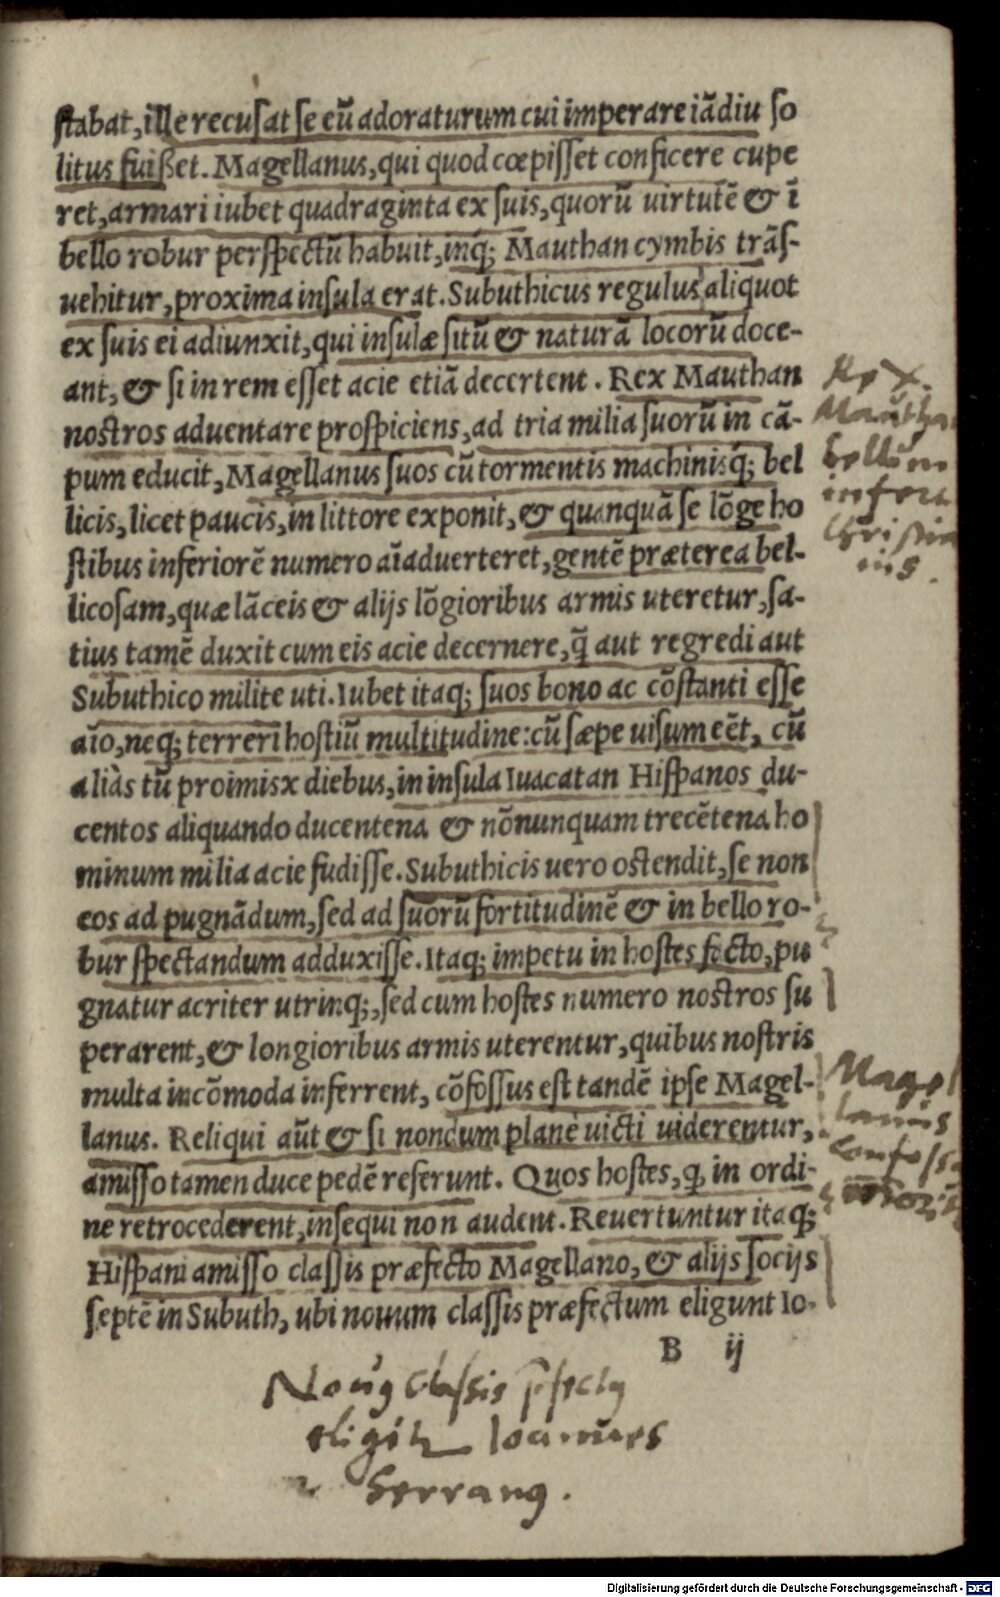 stabat, ille recusat se eũ adoraturum cui imperare iãdiu so
litus fuißet. Magellanus, qui quod cœpisset conficere cupe
ret, armari iubet quadraginta ex suis, quorũ uirtutẽ & ĩ
bello robur perspectũ habuit, inq; Mauthan cymbis trãs-
uehitur, proxima insula erat. Subuthicus regulus aliquot
ex suis ei adiunxit, qui insulæ sitũ & naturã locorũ doce-
ant, & si in rem esset acie etiã decertent. Rex Mauthan
nostros aduentare prospiciens, ad tria milia suorũ in cã-
pum educit, Magellanus suos cũ tormentis machinisq; bel
licis, licet paucis, in littore exponit, & quanquã se lõge ho
stibus inferiorẽ numero aĩaduerteret, gentẽ præterea bel-
licosam, quæ lãceis & alijs lõgioribus armis uteretur, sa-
tius tamẽ duxit cum eis acie decernere, q̃ aut regredi aut
Subuthico milite uti. Iubet itaq; suos bono ac cõstanti esse
aĩo, neq; terreri hostiũ multitudine: cũ sæpe uisum eẽt, cũ
aliàs tũ proimisx diebus, in insula Iuacatan Hispanos du-
centos aliquando ducentena & nõnunquam trecẽtena ho
minum milia acie fudisse. Subuthicis uero ostendit, se non
eos ad pugnãdum, sed ad suorũ fortitudinẽ & in bello ro-
bur spectandum adduxisse. Itaq; impetu in hostes fecto, pu
gnatur acriter utrinq;, sed cum hostes numero nostros su
perarent, & longioribus armis uterentur, quibus nostris
multa incõmoda inferrent, cõfossus est tandẽ ipse Magel-
lanus. Reliqui aũt & si nondum planè uicti uiderentur,
amisso tamen duce pedẽ referunt. Quos hostes, q, in ordi-
ne retrocederent, insequi non audent. Reuertuntur itaq;
Hispani amisso classis præfecto Magellano, & alijs socijs
septẽ in Subuth, ubi nouum classis præfectum eligunt Io-
B ij
Rex
Mautha
bellum
infert
Christia
nis.
Magel
lanus
confoss
Nouus Classis
Ioannes
Serranus.
Digitalisierung gefördert durch die Deutsche Forschungsgemeinschaft - DFG